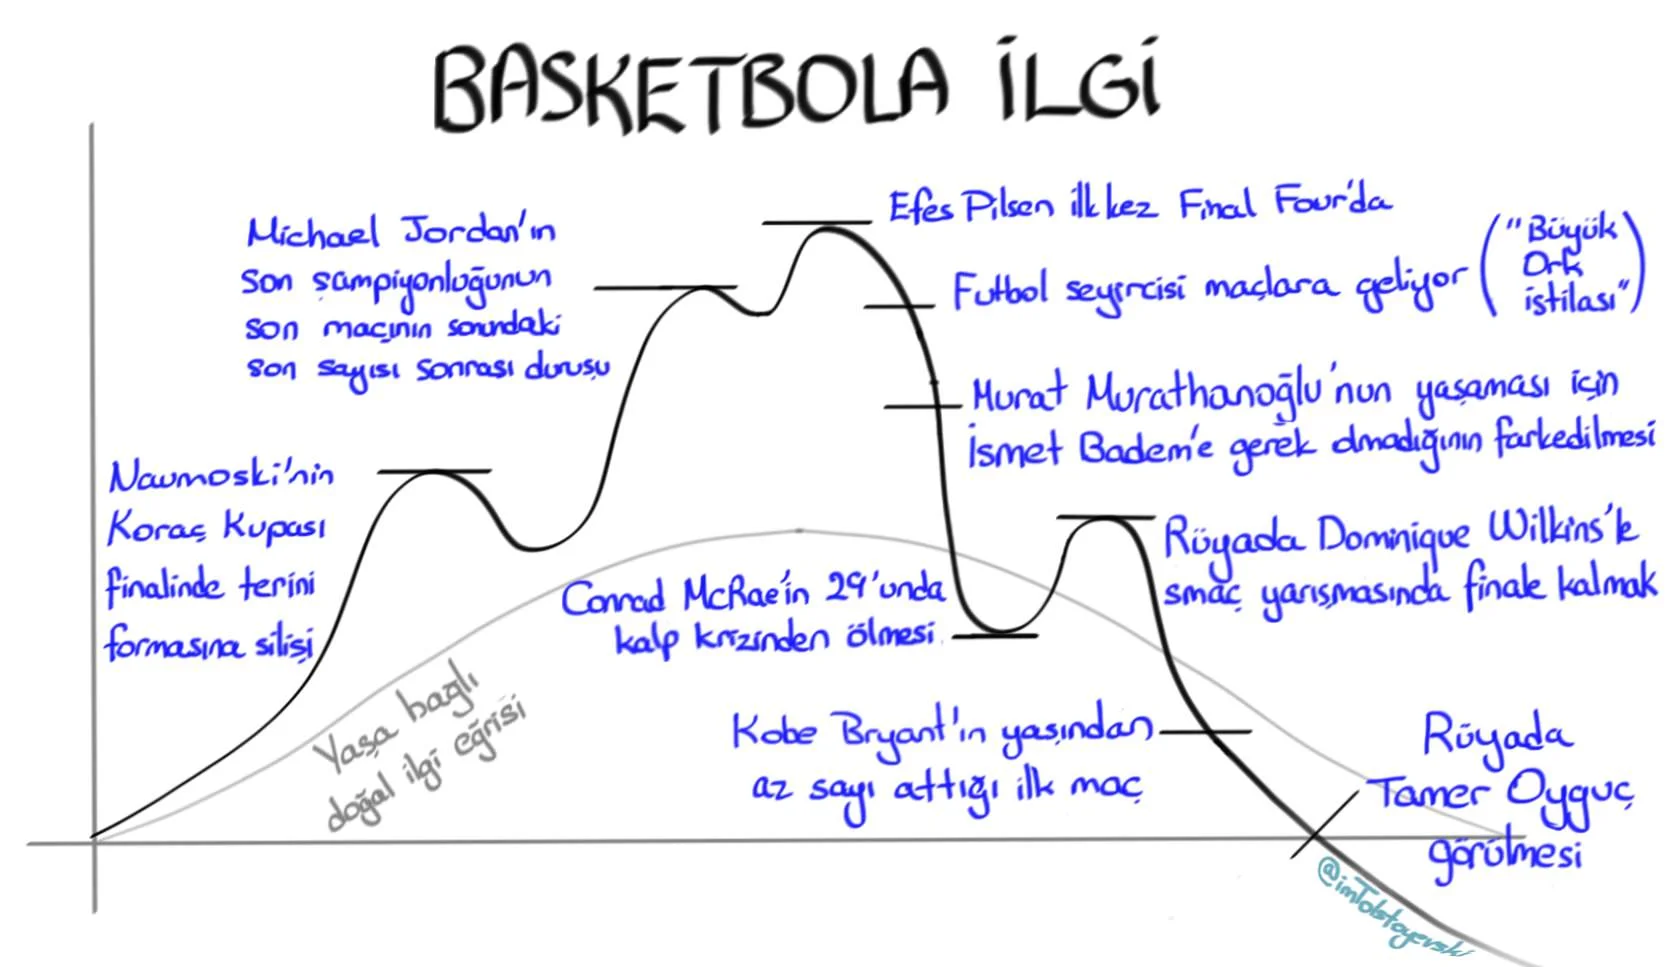 BASKETBOLA İLGİ
Michael Jordan'ın
son şampiyonluğunun
son maçının sonundaki
son sayısı sonrası duruşu
Efes Pilsen ilk kez Final Four'da
Futbol seyircisi maçlara geliyor ("Büyük
Ork
istilası")
Murat Murathanoğlu'nun yaşaması için
İsmet Badem'e gerek olmadığının farkedilmesi
Naumoski'nin
Koraç Kupası
finalinde terini
formasına silişi
Rüyada Dominique Wilkins'le
smaç yarışmasında finale kalmak
Conrad McRae'in 29'unda
kalp krizinden ölmesi
Yaşa bağlı
doğal ilgi eğrisi
Kobe Bryant'ın yaşından
az sayı attığı ilk maç
Rüyada
Tamer Oyguç
görülmesi
@imTolstoyevski